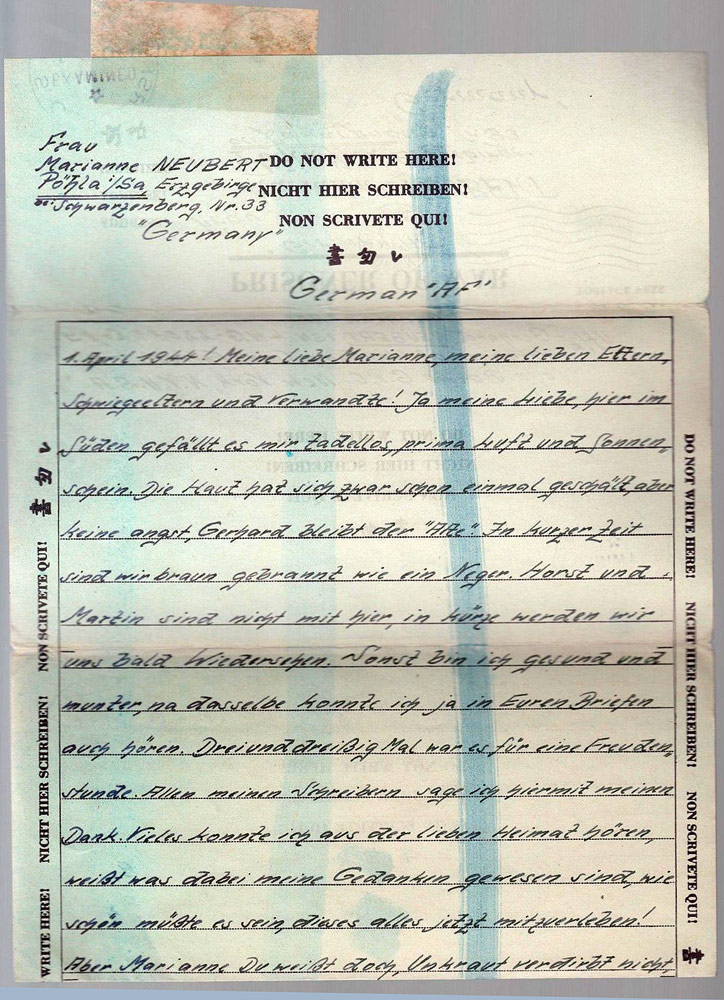 EXAMINED
Frau
Marianne NEUBERT
Pöhla i/Sa, Erzgebirge
bei Schwarzenberg, Nr. 33
"Germany"
DO NOT WRITE HERE!
NICHT HIER SCHREIBEN!
NON SCRIVETE QUI!
書勿レ
German "AF"
PRISONER OF WAR
1. April 1944! Meine liebe Marianne, meine lieben Eltern,
Schwiegeeltern und Verwandte! Ja meine Liebe, hier im
Süden gefällt es mir tadellos, prima Luft und Sonnen„
schein. Die Haut hat sich zwar schon einmal geschält, aber
keine angst, Gerhard bleibt der "Alte". In kurzer Zeit
sind wir braun gebrannt wie ein Neger. Horst und
Martin sind nicht mit hier, in kürze werden wir
uns bald Wiedersehen. Sonst bin ich gesund und
munter, na dasselbe konnte ich ja in Euren Briefen
auch hören. Dreiunddreißig Mal war es für eine Freuden„
stunde. Allen meinen Schreibern sage ich hiermit meinen
Dank. Vieles konnte ich aus der lieben Heimat hören,
weißt was dabei meine Gedanken gewesen sind, wie
schön müßte es sein, dieses alles jetzt mitzuerleben!
Aber Marianne Du weißt doch, Unkraut verdirbt nicht,
書勿レ
NON SCRIVETE QUI!
NICHT HIER SCHREIBEN!
WRITE HERE!
DO NOT WRITE HERE!
NICHT HIER SCHREIBEN!
NON SCRIVETE QUI!
書